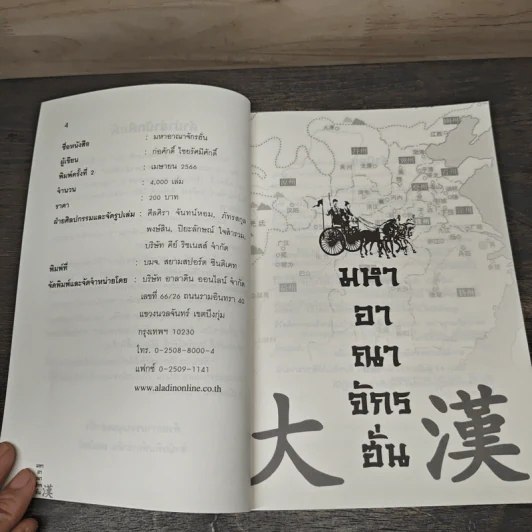 4
ชื่อหนังสือ : มหาอาณาจักรฮั่น
ผู้เขียน : ก่อศักดิ์ ไชยรัศมีศักดิ์
พิมพ์ครั้งที่ 2 : เมษายน 2566
จำนวน : 4,000 เล่ม
ราคา : 200 บาท
ฝ่ายศิลปกรรมและจัดรูปเล่ม : ศิลศิรา จันทน์หอม, ภัทรสกุล
พงษ์สิน, ปิยะลักษณ์ ใจสำรวม,
บริษัท ดีย์ ริชเนสส์ จำกัด
พิมพ์ที่ : บมจ. สยามสปอร์ต ซินดิเคท
จัดพิมพ์และจัดจำหน่ายโดย : บริษัท อาลาดิน ออนไลน์ จำกัด
เลขที่ 66/26 ถนนรามอินทรา 40
แขวงนวลจันทร์ เขตบึงกุ่ม
กรุงเทพฯ 10230
โทร. 0-2508-8000-4
แฟกซ์ 0-2509-1141
www.aladinonline.co.th
漢
มหา
อา
ณา
จักร
ฮั่น
大 漢